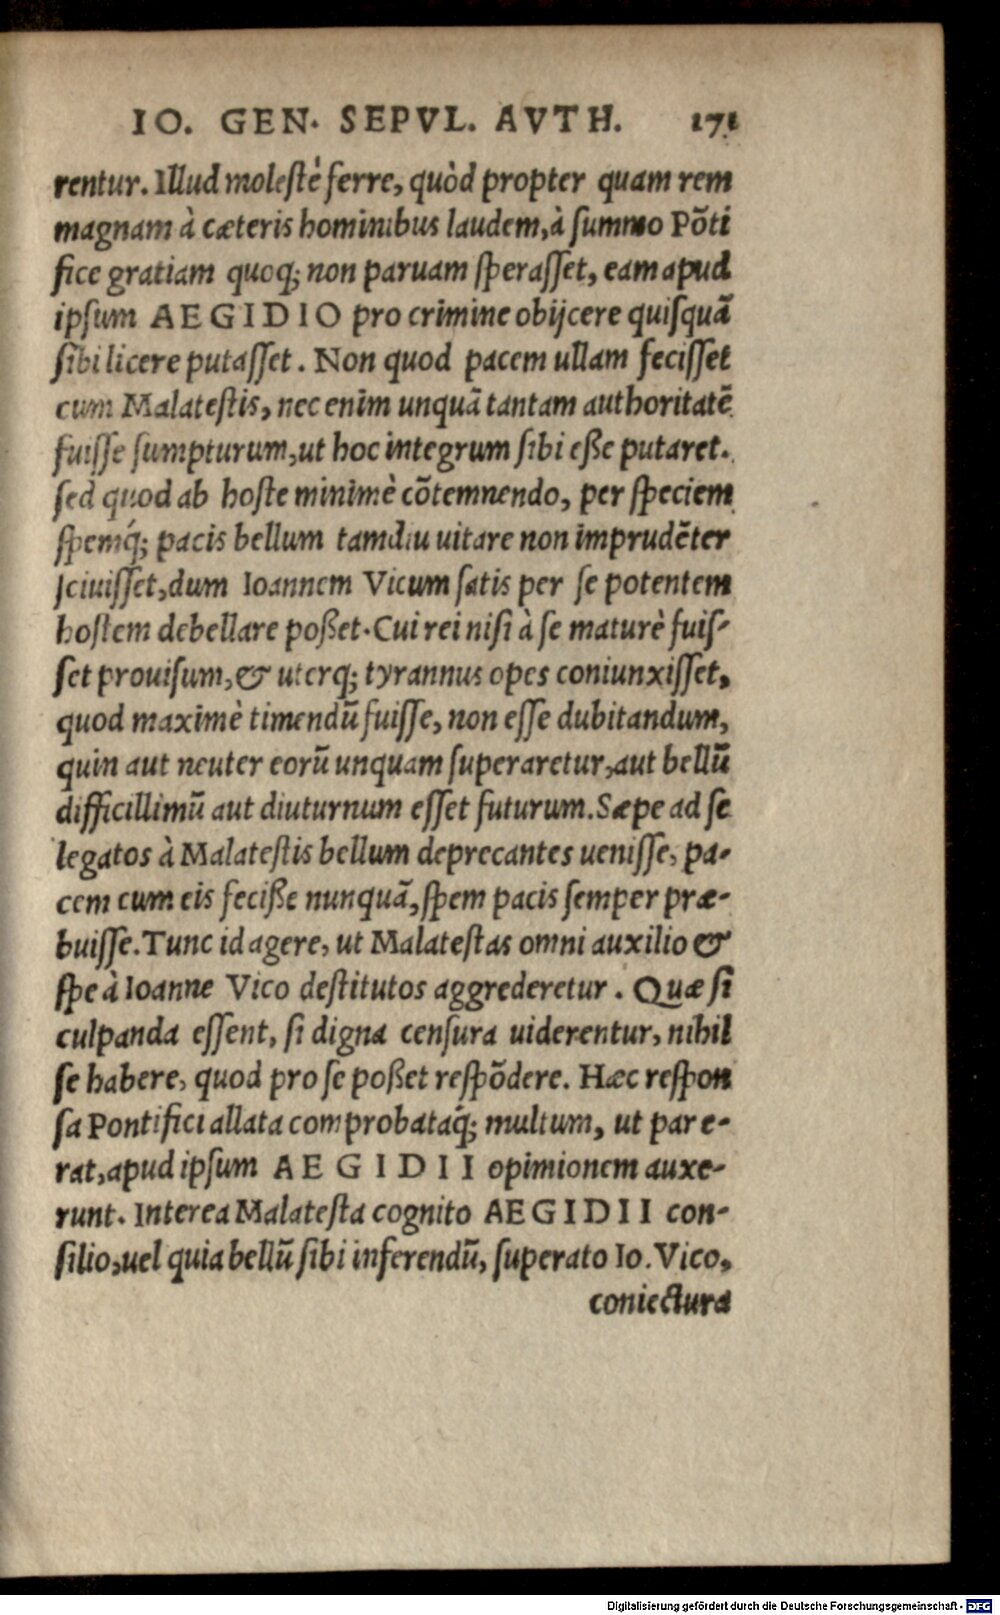 IO. GEN. SEPVL. AVTH. 171
rentur. Illud molestè ferre, quòd propter quam rem
magnam à cæteris hominibus laudem, à summo Põti
fice gratiam quoq; non paruam sperasset, eam apud
ipsum AEGIDIO pro crimine obijcere quisquã
sibi licere putasset. Non quod pacem ullam fecisset
cum Malatestis, nec enim unquã tantam authoritatẽ
fuisse sumpturum, ut hoc integrum sibi eße putaret.
sed quod ab hoste minimè cõtemnendo, per speciem
spemq́; pacis bellum tamdiu uitare non imprudẽter
sciuisset, dum Ioannem Vicum satis per se potentem
hostem debellare poßet. Cui rei nisi à se maturè fuis-
set prouisum, & uterq; tyrannus opes coniunxisset,
quod maximè timendũ fuisse, non esse dubitandum,
quin aut neuter eorũ unquam superaretur, aut bellũ
difficillimũ aut diuturnum esset futurum. Sæpe ad se
legatos à Malatestis bellum deprecantes uenisse, pa-
cem cum eis feciße nunquã, spem pacis semper præ-
buisse. Tunc id agere, ut Malatestas omni auxilio &
spe à Ioanne Vico destitutos aggrederetur. Quæ si
culpanda essent, si digna censura uiderentur, nihil
se habere, quod pro se poßet respõdere. Hæc respon
sa Pontifici allata comprobataq́; multum, ut par e-
rat, apud ipsum AEGIDII opimionem auxe-
runt. Interea Malatesta cognito AEGIDII con-
silio, uel quia bellũ sibi inferendũ, superato Io. Vico,
coniectura
Digitalisierung gefördert durch die Deutsche Forschungsgemeinschaft - DFG